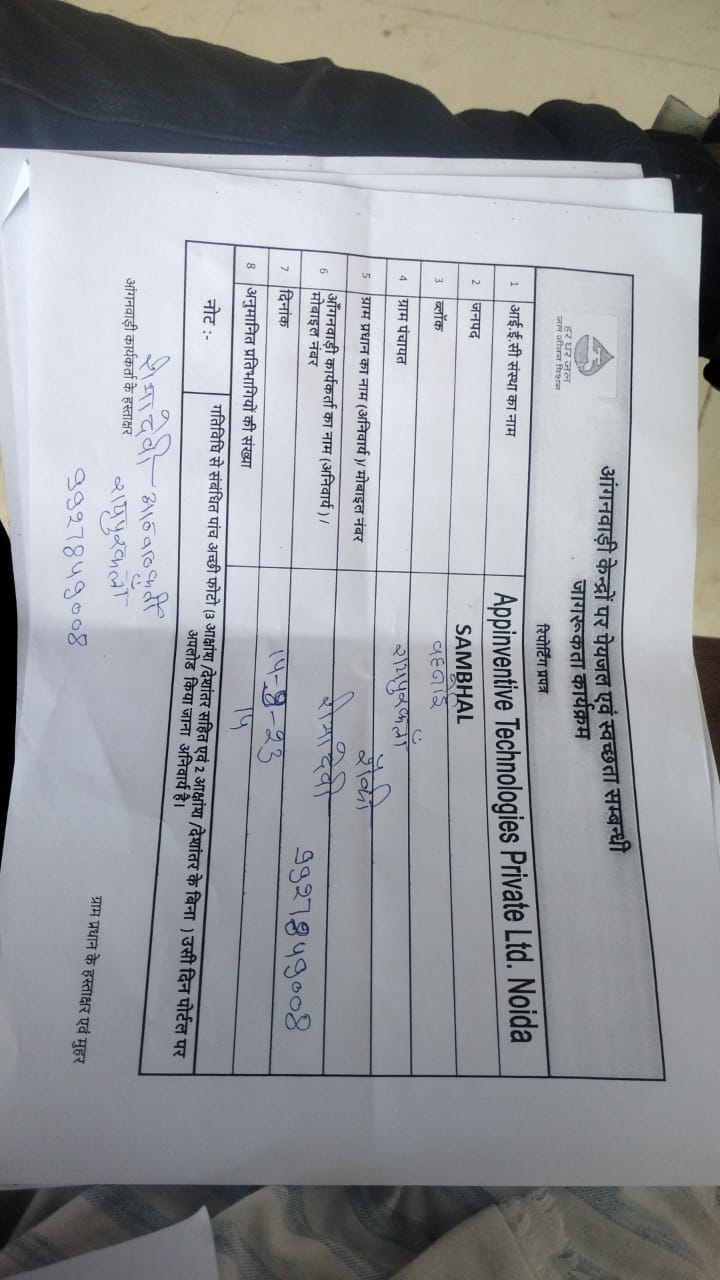 हर घर जल
जल जीवन मिशन
आंगनवाड़ी केन्द्रों पर पेयजल एवं स्वच्छता सम्बन्धी
जागरूकता कार्यक्रम
रिपोर्टिंग प्रपत्र
1 आई.ई.सी संस्था का नाम Appinventive Technologies Private Ltd. Noida
2 जनपद SAMBHAL
3 ब्लॉक
4 ग्राम पंचायत रायपुरकलां
5 ग्राम प्रधान का नाम (अनिवार्य )/ मोबाइल नंबर
6 आँगनवाड़ी कार्यकर्ता का नाम (अनिवार्य ) / मोबाइल नंबर
9927849008
7 दिनांक 14-9-23
8 अनुमानित प्रतिभागियों की संख्या 14
नोट :- गतिविधि से संबंधित पांच अच्छी फोटो (3 आक्षांश /देशांतर सहित एवं 2 आक्षांश /देशांतर के बिना ) उसी दिन पोर्टल पर
अपलोड किया जाना अनिवार्य है।
आंगनवाड़ी कार्यकर्ता के हस्ताक्षर
रायपुरकलां
9927849008
ग्राम प्रधान के हस्ताक्षर एवं मुहर